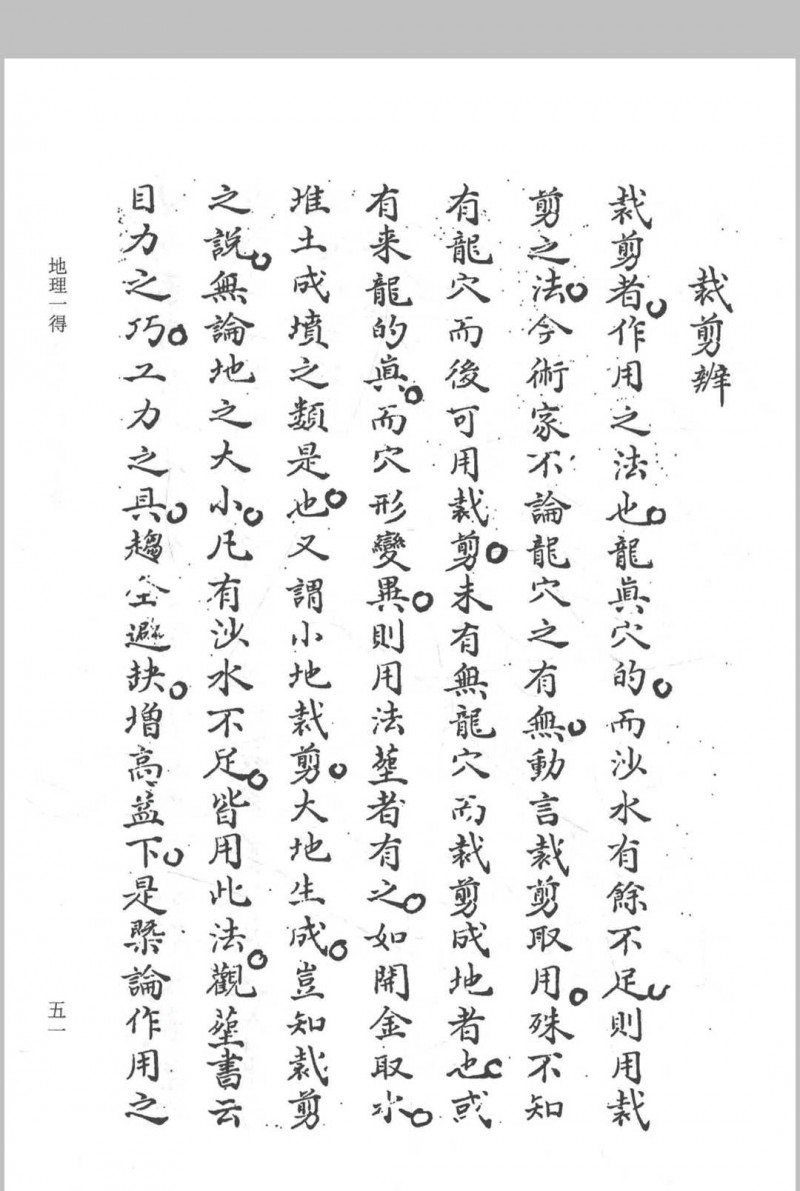 裁剪辨
裁剪者作用之法也龍眞穴的而沙水有餘不足則用裁
剪之法今術家不論龍穴之有無動言裁剪取用殊不知
有龍穴而後可用裁剪未有無龍穴而裁剪成地者也或
有来龍的眞而穴形變異則用法塟者有之如開金取水
堆土成墳之類是也又謂小地裁剪大地生成豈知裁剪
之說無論地之大小凡有沙水不足皆用此法觀塟書云
目力之巧工力之具趨全避缺增高益下是槩論作用之
地理一得
五一